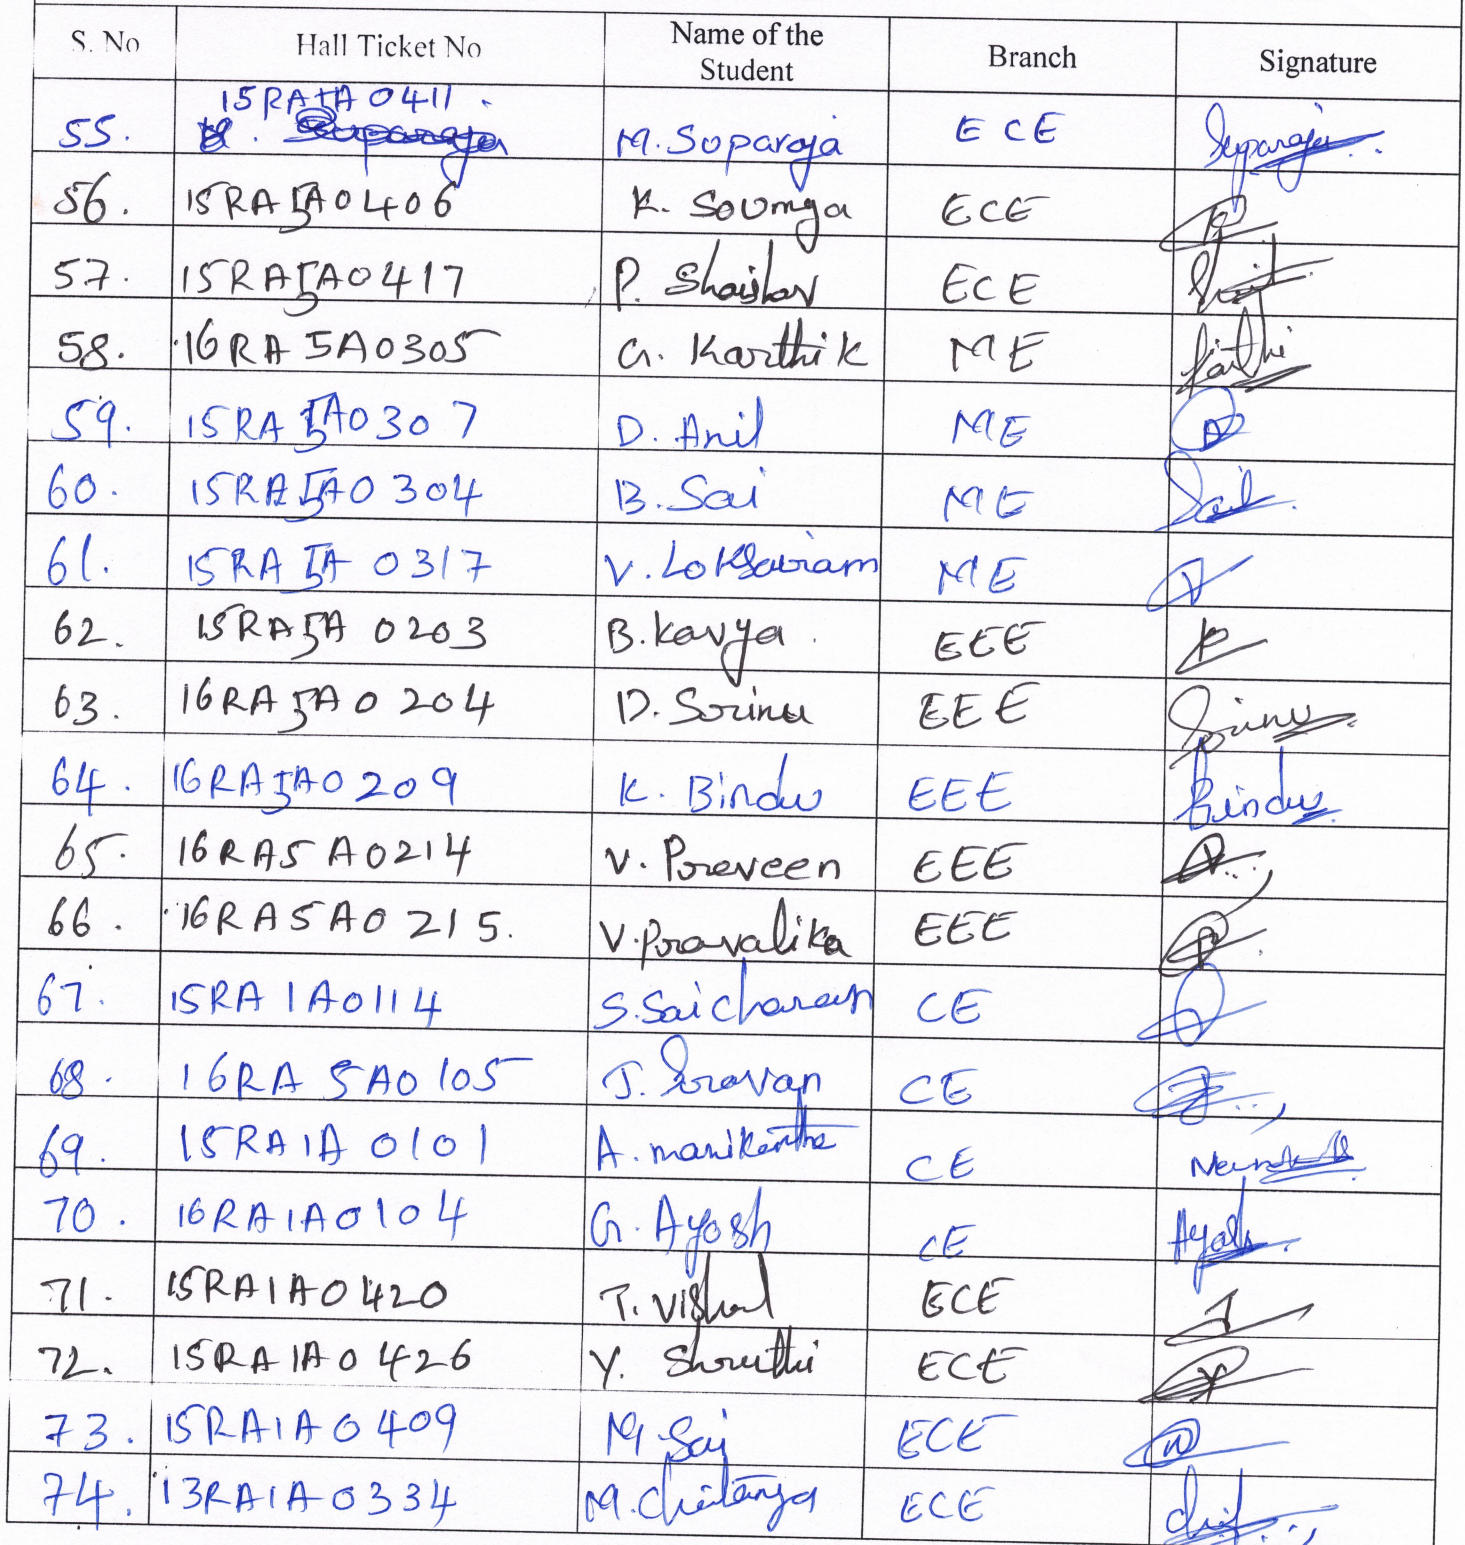 S. No Hall Ticket No Name of the Student Branch Signature
55. 15RA1A0411. M. Soparaja ECE Suparaja
56. 15RA5A0406 K. Soumya ECE
57. 15RA5A0417 P. ECE
58. 16RA5A0305 G. Karthik ME Karthi
59. 15RA5A0307 D. Anil ME
60. 15RA5A0304 B. Sai ME
61. 15RA5A0317 V. Loksairam ME
62. 15RA5A0203 B. Kavya EEE
63. 16RA5A0204 D. Srinu EEE Srinu
64. 16RA5A0209 K. Bindu EEE Bindu
65. 16RA5A0214 V. Praveen EEE
66. 16RA5A0215. V. Pravalika EEE
67. 15RA1A0114 S. Saicharan CE
68. 16RA5A0105 J. Sravan CE
69. 15RA1A0101 A. manikanta CE
70. 16RA1A0104 G. Ayosh CE Ayosh
71. 15RA1A0420 T. Vishal ECE
72. 15RA1A0426 Y. Shruthi ECE
73. 15RA1A0409 M. Sai ECE
74. 13RA1A0334 M. Chaitanya ECE